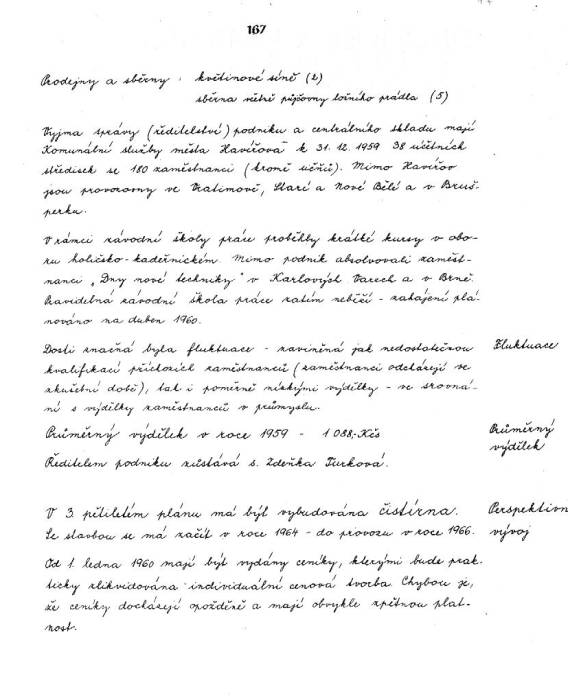 167
Prodejny a sběrny : květinové síně (2)
sběrna včetně půjčovny ložního prádla (5)
Vyjma správy (ředitelství) podniku a centrálního skladu mají
Komunální služby města Havířova k 31. 12. 1959 38 účetních
středisek se 180 zaměstnanci (kromě učňů). Mimo Havířov
jsou provozovny ve Vratimově, Staré a Nové Bělé a v Bruš-
perku.
V rámci závodní školy práce proběhly krátké kursy v obo-
ru holičsko-kadeřnickém. Mimo podnik absolvovali zaměst-
nanci „Dny nové techniky" v Karlových Varech a v Brně.
Pravidelná závodní škola práce zatím neběží - zahájení plá-
nováno na duben 1960.
Dosti značná byla fluktuace - zaviněná jak nedostatečnou
Fluktuace
kvalifikací příchozích zaměstnanců (zaměstnanci odcházejí ve
zkušební době), tak i poměrně nízkými výdělky - ve srovná-
ní s výdělky zaměstnanců v průmyslu.
Průměrný výdělek v roce 1959 - 1 088,-Kčs
Průměrný
výdělek
Ředitelem podniku zůstává s. Zdeňka Turková.
V 3. pětiletém plánu má být vybudována čistírna.
Perspektivn
Se stavbou se má začít v roce 1964 - do provozu v roce 1966.
vývoj
Od 1. ledna 1960 mají být vydány ceníky, kterými bude prak-
ticky zlikvidována individuální cenová tvorba. Chybou je,
že ceníky docházejí opožděně a mají obvykle zpětnou plat-
nost.